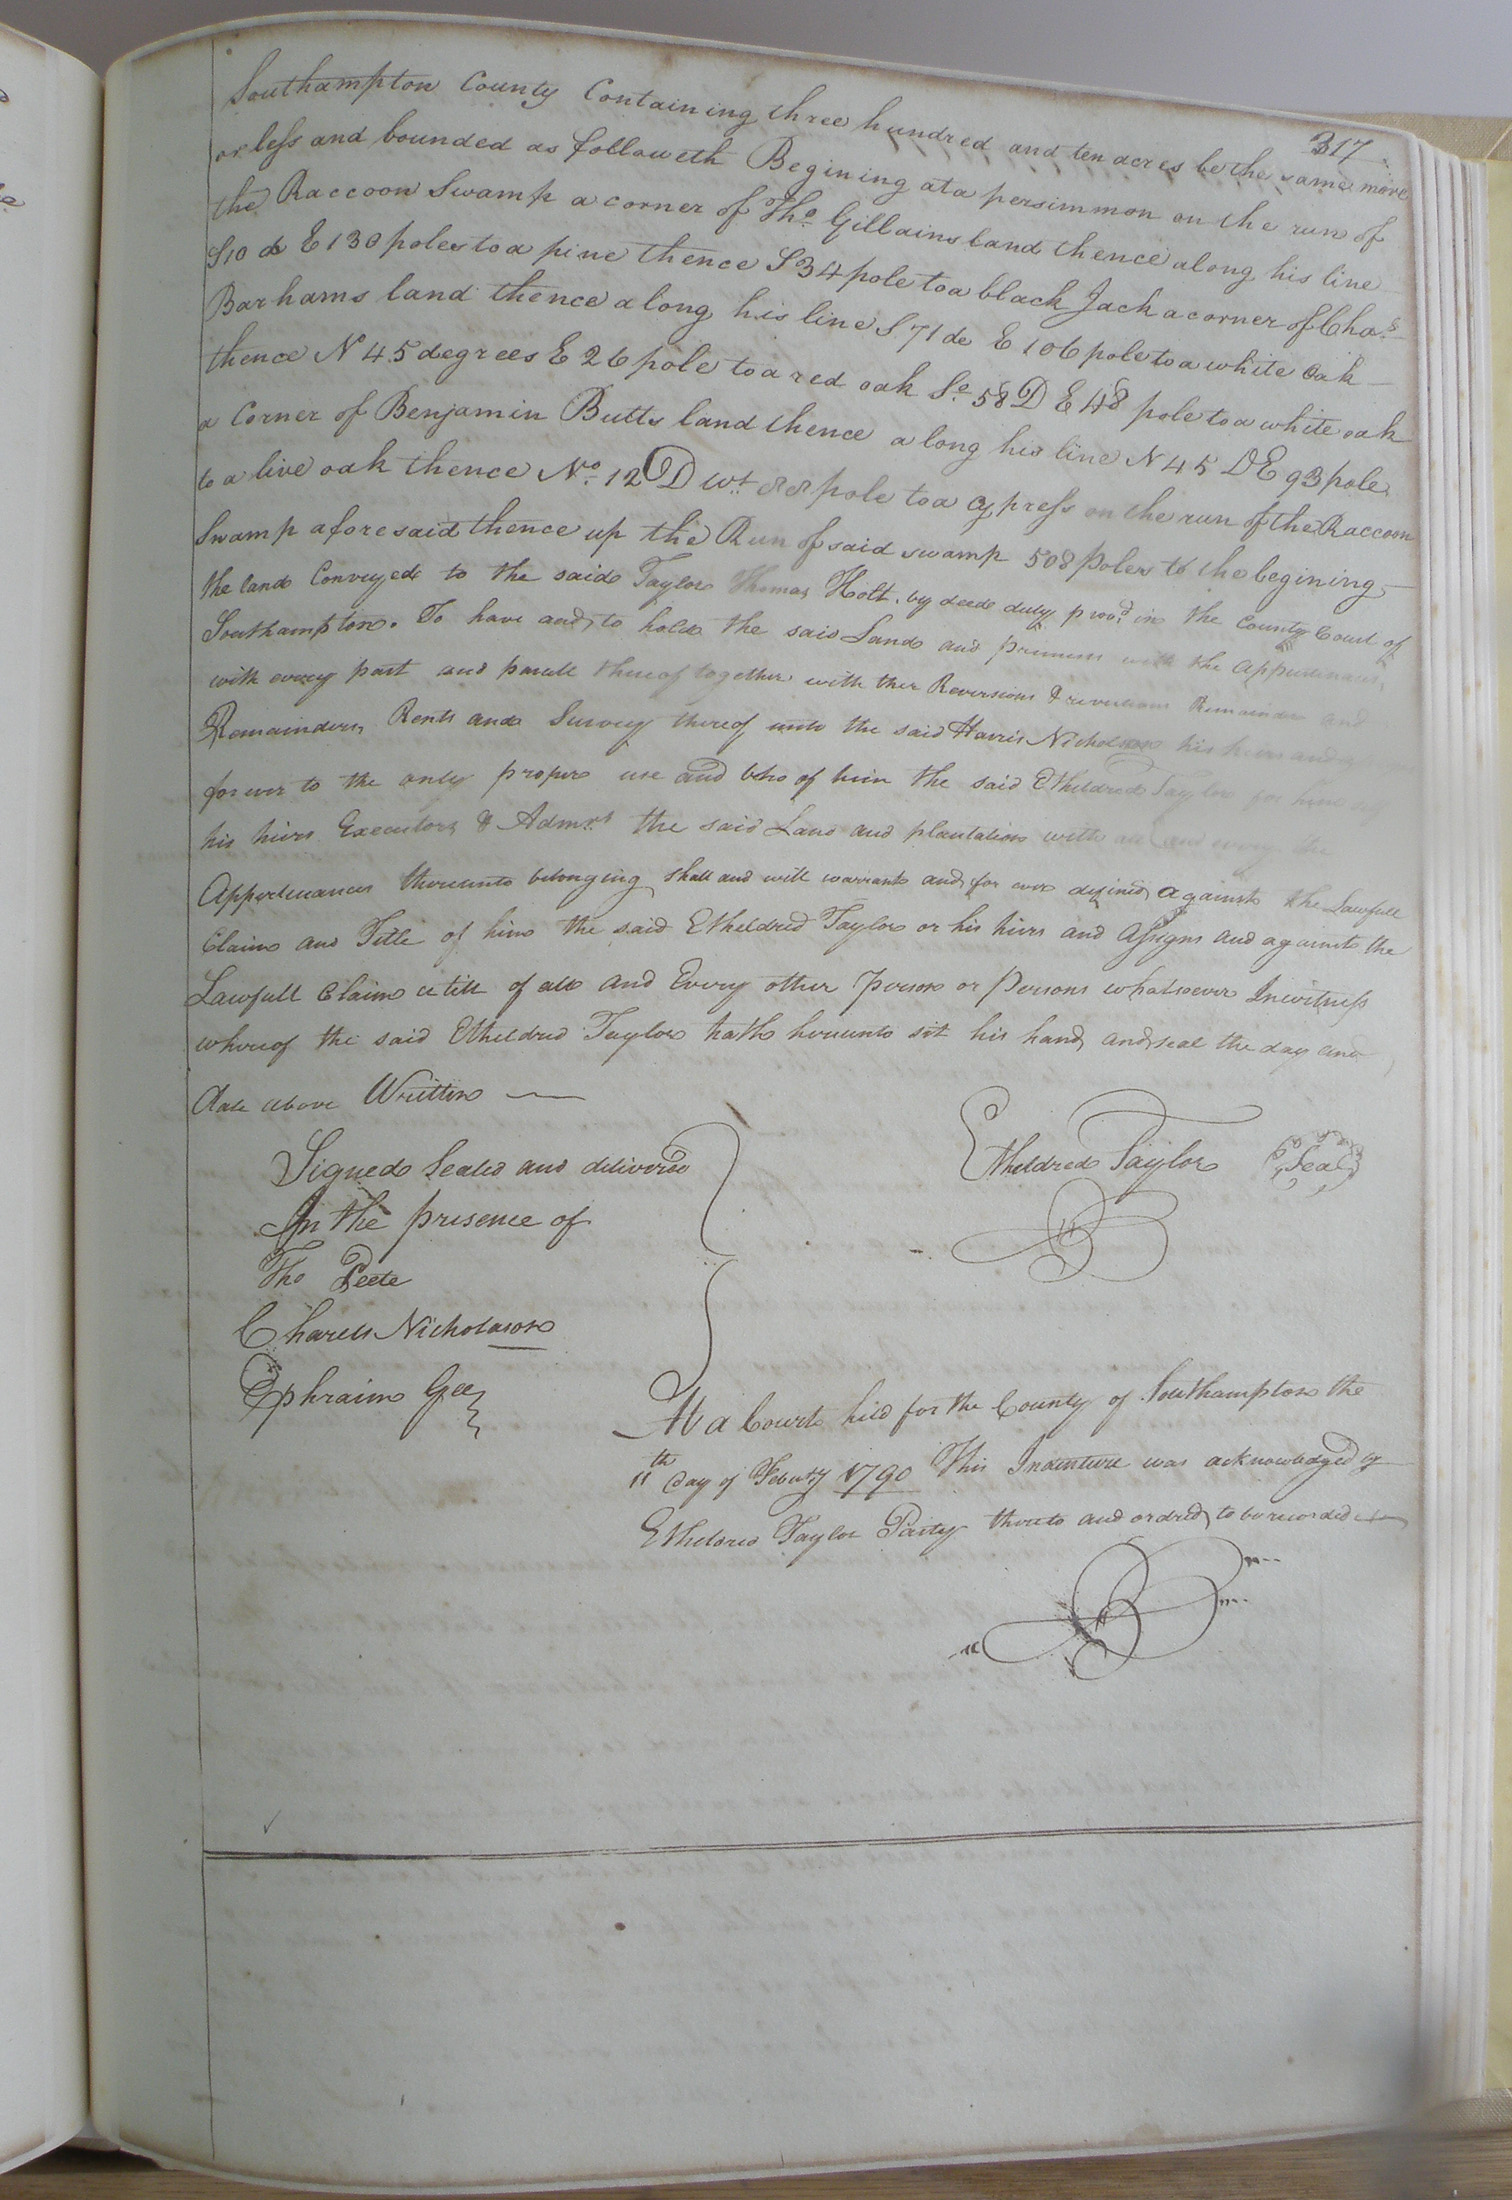 317
Southampton County Containing three hundred and ten acres be the same more
or less and bounded as followeth Begining at a persimmon on the run of
the Raccoon Swamp a corner of Tho. Gillains land thence along his line
S10 d E 130 poles to a pine thence S 34 pole to a black Jack a corner of Chas
Barhams land thence along his line S 71 de E 106 pole to a white oak
thence N 45 degrees E 26 pole to a red oak So 58 D E 48 pole to a white oak
a Corner of Benjamin Butts land thence along his line N 45 D E 93 pole
to a live oak thence No 12 D Wt 88 pole to a Cypress on the run of the Raccoon
Swamp aforesaid thence up the Run of said swamp 508 poles to the begining
the land Conveyed to the said Taylor Thomas Holt by deed duly prov'd in the County Court of
Southampton. To have and to hold the said Land and premises with the Appurtenances
with every part and parcell thereof together with ther Reversions & reversions Remainder and
Remainders, Rents and Survey thereof unto the said Harris Nicholson his heirs and
forever to the only proper use and of him the said Etheldred Taylor for him
his hiers Executors & Admrs the said Land and plantation with all and every the
Appertenances thereunto belonging shall and will warrant and for ever defend against the Lawfull
Claim and Title of him the said Etheldred Taylor or his hiers and Assigns and against the
Lawfull Claim & title of all and Every other Person or Persons whatsoever In witness
whereof the said Etheldred Taylor hath hereunto sit his hand and seal the day and
date above Written
Signed Sealed and delivered
In the presence of
Tho Peete
Charels Nicholason
Ephraim Gee
Etheldred Taylor Seal
At a Court held for the County of Southampton the
11th day of Febuary 1790 This Indenture was acknowledged by
Etheldred Taylor Party thereto and ordred to be recorded